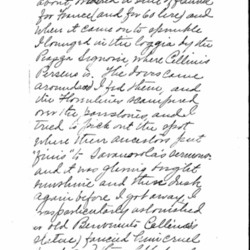 about ordered a suit of flannel
for France (and for 60 lire) and
when it came on to sprinkle
I lounged in the loggia by the
Piazza Signoria, where Cellini's
Perseus is. The doves came
around and I fed them, and
the Florentines scampered
over the parastones, and I
tried to pick out the spot
where their ancestors put
"finis" to Savanorola's sermons
and it was glinting bright
sunshine and then dusky
again before I got away. I
was particularly astonished
at old Benvenuto Cellini's
statue) fancied him cruel